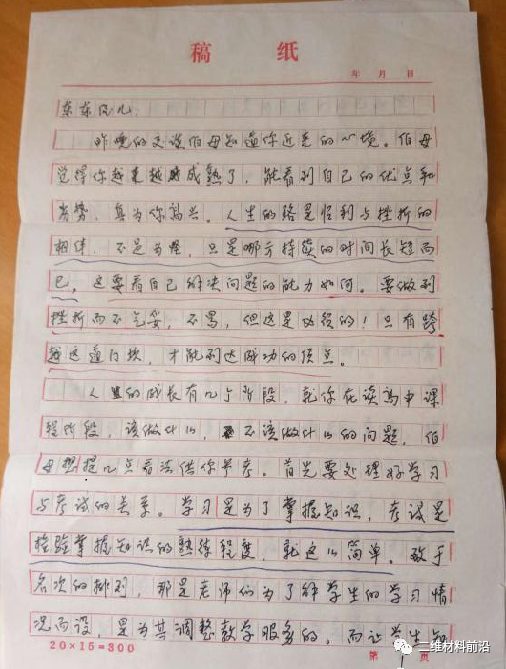 稿 纸
年 月 日
东东侄儿:
昨晚的交谈伯母知道你近况的心境。伯母
觉得你越来越成熟了,能看到自己的优点和
劣势,真为你高兴。人生的路是顺利与挫折的
相伴,不是为怪,只是哪方持续的时间长短而
已,这要看自己解决问题的能力如何。要做到
挫折而不气妥,不易,但这是必须的!只有跨
越这道门坎,才能到达成功的顶点。
人生的成长有几个阶段,就你在读高中课
程阶段,该做什么,不该做什么的问题,伯
母想提几点看法供你参考。首先要处理好学习
与考试的关系。学习是为了掌握知识,考试是
检验掌握知识的熟练程度,就这么简单。致于
名次的排列,那是老师们为了解学生的学习情
况而设,是为其调整教学服务的,而让学生知
20×15=300
第 页
三维材料前沿